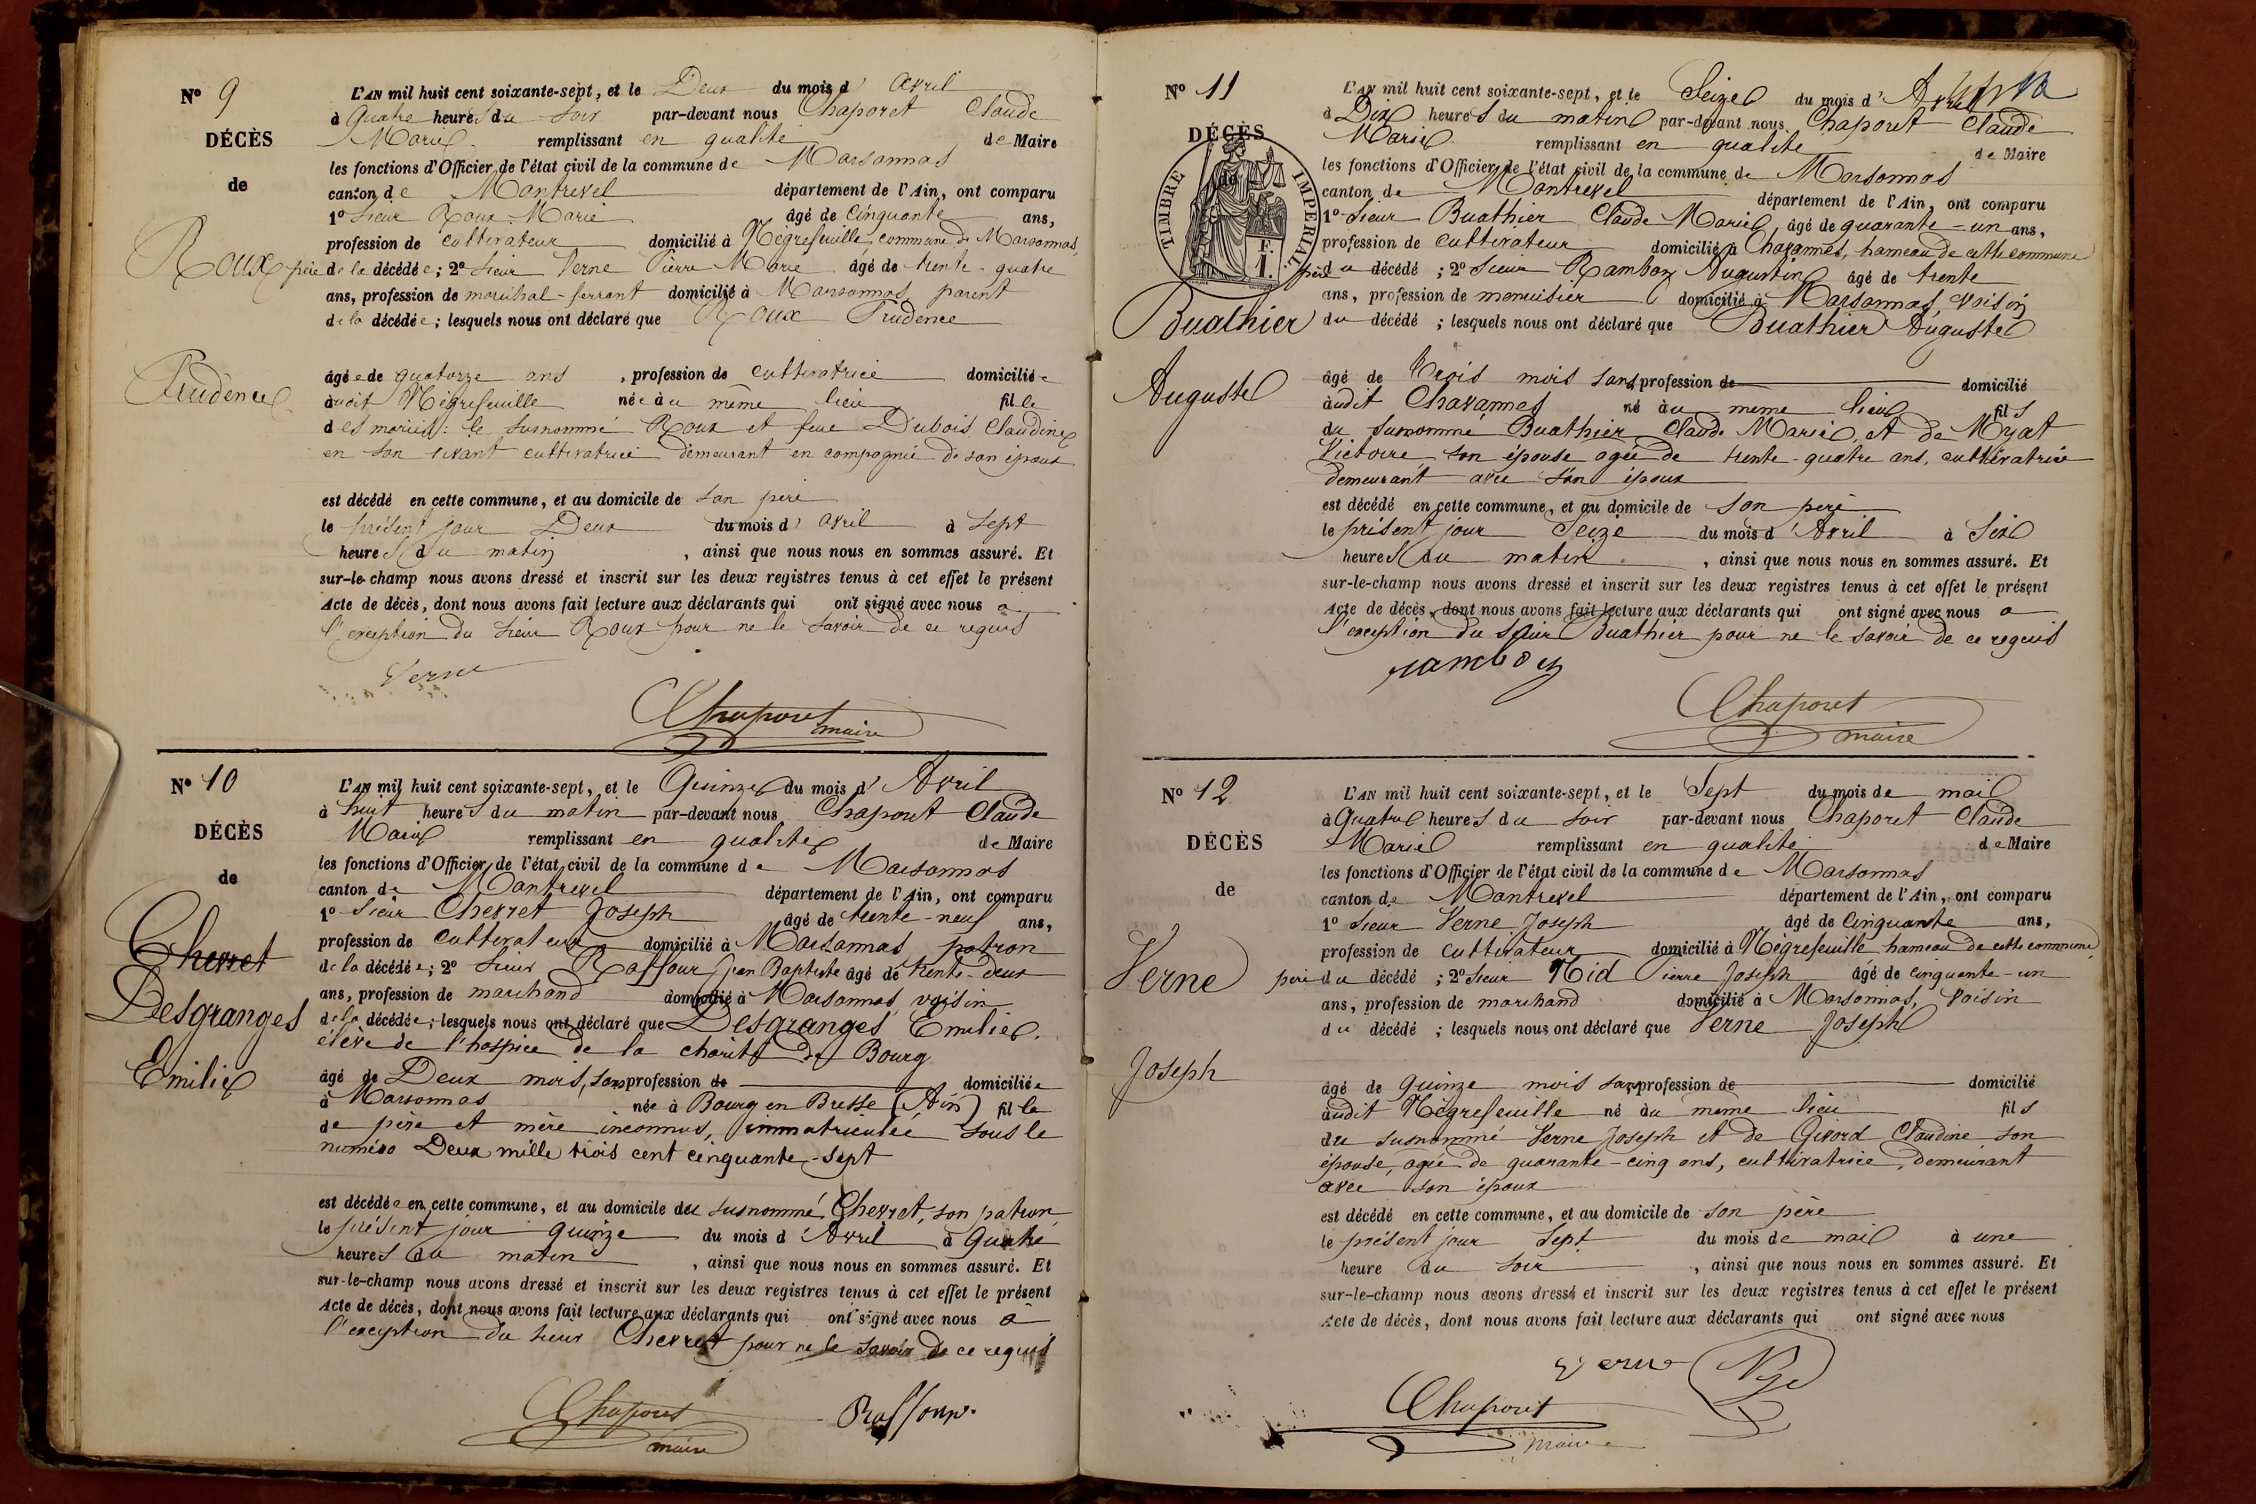 N° 9
DÉCÈS
de
Roux
Prudence
L'AN mil huit cent soixante-sept, et le Deux du mois d' avril
à Quatre heures du soir par-devant nous Chaporet Claude
Marie remplissant en qualité de Maire
les fonctions d'Officier de l'état civil de la commune de Marsonnas
canton de Montrevel département de l'Ain, ont comparu
1° Sieur Roux Marie âgé de Cinquante ans,
profession de cultivateur domicilié à Nègrefeuille commune de Marsonnas,
père de la décédée; 2° Sieur Verne Pierre Marie âgé de trente-quatre
ans, profession de maréchal-ferrant domicilié à Marsonnas, parent
de la décédée; lesquels nous ont déclaré que Roux Prudence
âgée de quatorze ans , profession de cultivatrice domiciliée
audit Nègrefeuille née au même lieu fille
des mariés: le susnommé Roux et feue Dubois Claudine
en son vivant cultivatrice demeurant en compagnie de son époux
est décédé en cette commune, et au domicile de son père
le présent jour Deux du mois d' avril à Sept
heures du matin , ainsi que nous nous en sommes assuré. Et
sur-le-champ nous avons dressé et inscrit sur les deux registres tenus à cet effet le présent
Acte de décès, dont nous avons fait lecture aux déclarants qui ont signé avec nous a
l'exception du Sieur Roux pour ne le savoir de ce requis
Verne
Chaporet
maire
N° 10
DÉCÈS
de
Chevret
Desgranges
Emilie
L'AN mil huit cent soixante-sept, et le Quinze du mois d' Avril
à huit heures du matin par-devant nous Chaporet Claude
Marie remplissant en qualité de Maire
les fonctions d'Officier de l'état civil de la commune de Marsonnas
canton de Montrevel département de l'Ain, ont comparu
1° Sieur Chevret Joseph âgé de trente-neuf ans,
profession de cultivateur domicilié à Marsonnas patron
de la décédée; 2° Sieur Raffour Jean Baptiste âgé de trente-deux
ans, profession de marchand domicilié à Marsonnas, voisin
de la décédée; lesquels nous ont déclaré que Desgranges Emilie,
élève de l'hospice de la charité de Bourg
âgé de Deux mois, sans profession de domiciliée
à Marsonnas née à Bourg en Bresse (Ain) fille
de père et mère inconnus, immatriculée sous le
numéro Deux mille trois cent cinquante-sept
est décédée en cette commune, et au domicile du susnommé Chevret, son patron
le présent jour quinze du mois d' Avril à Quatre
heures du matin , ainsi que nous nous en sommes assuré. Et
sur-le-champ nous avons dressé et inscrit sur les deux registres tenus à cet effet le présent
Acte de décès, dont nous avons fait lecture aux déclarants qui ont signé avec nous a
l'exception du sieur Chevret pour ne le savoir de ce requis
Chaporet
maire
Raffour
N° 11
DÉCÈS
de
TIMBRE IMPERIAL.
F.
1.
Buathier
Auguste
L'AN mil huit cent soixante-sept, et le Seize du mois d' Avril
à Dix heures du matin par-devant nous Chaporet Claude
Marie remplissant en qualité de Maire
les fonctions d'Officier de l'état civil de la commune de Marsonnas
canton de Montrevel département de l'Ain, ont comparu
1° Sieur Buathier Claude Marie, âgé de quarante-un ans,
profession de cultivateur domicilié à Chavannes, hameau de cette commune
père du décédé ; 2° Sieur Ramboz Augustin âgé de trente
ans, profession de menuisier domicilié à Marsonnas, voisin
du décédé ; lesquels nous ont déclaré que Buathier Auguste
âgé de trois mois sans profession de domicilié
audit Chavannes né au même lieu fils
du susnommé Buathier Claude Marie, et de Myat
Victoire son épouse agée de trente-quatre ans, cultivatrice
demeurant avec son époux
est décédé en cette commune, et au domicile de son père
le présent jour Seize du mois d' Avril à Six
heures du matin , ainsi que nous nous en sommes assuré. Et
sur-le-champ nous avons dressé et inscrit sur les deux registres tenus à cet effet le présent
Acte de décès, dont nous avons fait lecture aux déclarants qui ont signé avec nous a
l'exception du sieur Buathier pour ne le savoir de ce requis
ramboz
Chaporet
maire
N° 12
DÉCÈS
de
Verne
Joseph
L'AN mil huit cent soixante-sept, et le Sept du mois de mai
à Quatre heures du soir par-devant nous Chaporet Claude
Marie remplissant en qualité de Maire
les fonctions d'Officier de l'état civil de la commune de Marsonnas
canton de Montrevel département de l'Ain, ont comparu
1° Sieur Verne Joseph âgé de Cinquante ans,
profession de cultivateur domicilié à Nègrefeuille hameau de cette commune,
père du décédé ; 2° Sieur Nid Pierre Joseph âgé de cinquante-un
ans, profession de marchand domicilié à Marsonnas, voisin
du décédé ; lesquels nous ont déclaré que Verne Joseph
âgé de quinze mois sans profession de domicilié
audit Nègrefeuille né au même lieu fils
du susnommé Verne Joseph et de Givord Claudine son
épouse, agée de quarante-cinq ans, cultivatrice, demeurant
avec son époux
est décédé en cette commune, et au domicile de son père
le présent jour Sept du mois de mai à une
heure du soir , ainsi que nous nous en sommes assuré. Et
sur-le-champ nous avons dressé et inscrit sur les deux registres tenus à cet effet le présent
Acte de décès, dont nous avons fait lecture aux déclarants qui ont signé avec nous
Verne
Chaporet
maire